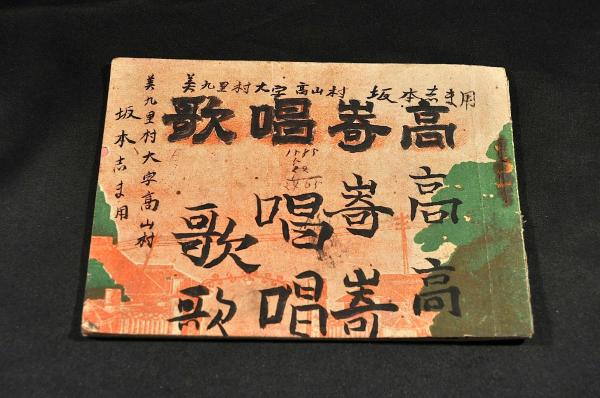 美九里村大字高山村 坂本志ま用
高嵜唱歌
高嵜唱歌
高嵜唱歌
美九里村大字高山村
坂本志ま用